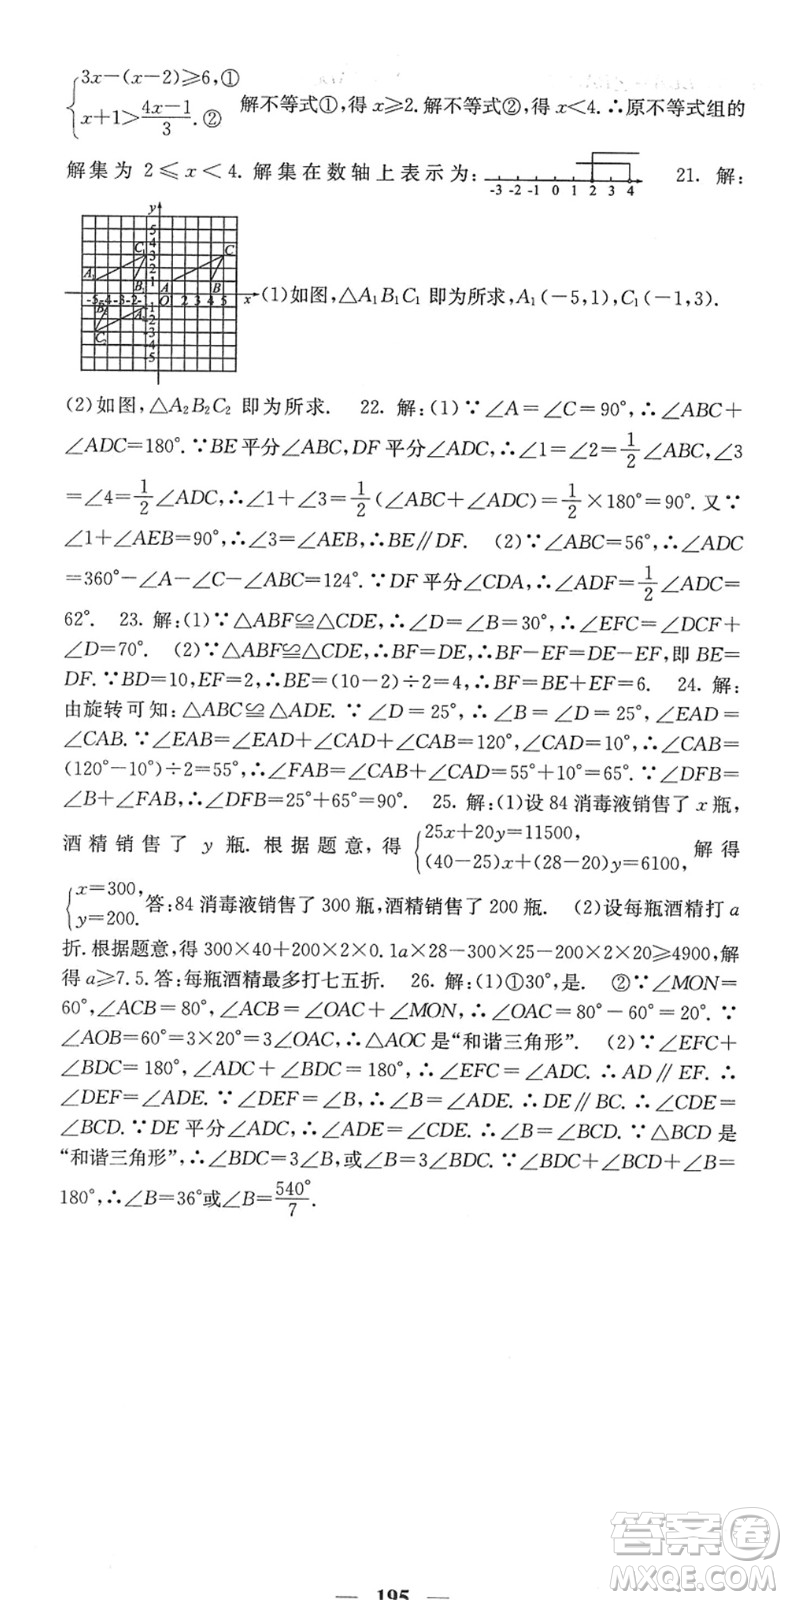 {3x-(x-2)≥6,①
x+1>(4x-1)/3.② 解不等式①,得 x≥2.解不等式②,得 x<4.∴原不等式组的
解集为 2≤x<4.解集在数轴上表示为: -3 -2 -1 0 1 2 3 4 21. 解:
(1)如图,△A₁B₁C₁ 即为所求,A₁(-5,1),C₁(-1,3).
(2)如图,△A₂B₂C₂ 即为所求. 22. 解:(1)∵∠A=∠C=90°,∴∠ABC+
∠ADC=180°.∵BE平分∠ABC,DF平分∠ADC,∴∠1=∠2=1/2∠ABC,∠3
=∠4=1/2∠ADC,∴∠1+∠3=1/2(∠ABC+∠ADC)=1/2×180°=90°.又∵
∠1+∠AEB=90°,∴∠3=∠AEB,∴BE∥DF. (2)∵∠ABC=56°,∴∠ADC
=360°-∠A-∠C-∠ABC=124°.∵DF平分∠CDA,∴∠ADF=1/2∠ADC=
62°. 23. 解:(1)∵△ABF≌△CDE,∴∠D=∠B=30°,∴∠EFC=∠DCF+
∠D=70°. (2)∵△ABF≌△CDE,∴BF=DE,∴BF-EF=DE-EF,即BE=
DF.∵BD=10,EF=2,∴BE=(10-2)÷2=4,∴BF=BE+EF=6. 24. 解:
由旋转可知:△ABC≌△ADE.∵∠D=25°,∴∠B=∠D=25°,∠EAD=
∠CAB.∵∠EAB=∠EAD+∠CAD+∠CAB=120°,∠CAD=10°,∴∠CAB=
(120°-10°)÷2=55°,∴∠FAB=∠CAB+∠CAD=55°+10°=65°.∴∠DFB=
∠B+∠FAB,∴∠DFB=25°+65°=90°. 25. 解:(1)设84消毒液销售了x瓶,
酒精销售了 y 瓶.根据题意,得 {25x+20y=11500,
(40-25)x+(28-20)y=6100, 解得
{x=300,
y=200. 答:84消毒液销售了300瓶,酒精销售了200瓶. (2)设每瓶酒精打a
折.根据题意,得300×40+200×2×0.1a×28-300×25-200×2×20≥4900,解
得a≥7.5.答:每瓶酒精最多打七五折. 26. 解:(1)①30°,是. ②∵∠MON=
60°,∠ACB=80°,∴∠ACB=∠OAC+∠MON,∴∠OAC=80°-60°=20°.∵
∠AOB=60°=3×20°=3∠OAC,∴△AOC是“和谐三角形”. (2)∵∠EFC+
∠BDC=180°,∠ADC+∠BDC=180°,∴∠EFC=∠ADC.∴AD∥EF.∴
∠DEF=∠ADE.∵∠DEF=∠B,∴∠B=∠ADE.∴DE∥BC.∴∠CDE=
∠BCD.∵DE平分∠ADC,∴∠ADE=∠CDE.∴∠B=∠BCD.∵△BCD是
“和谐三角形”,∴∠BDC=3∠B,或∠B=3∠BDC.∵∠BDC+∠BCD+∠B=
180°,∴∠B=36°或∠B=540°/7.
195
答案圈
MXQE.COM